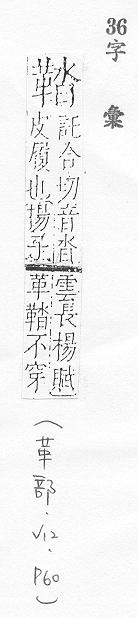 36
字彙
鞜
託合切音沓
皮履也揚子
雲長楊賦
革鞜不穿
（革部．V12．P60）